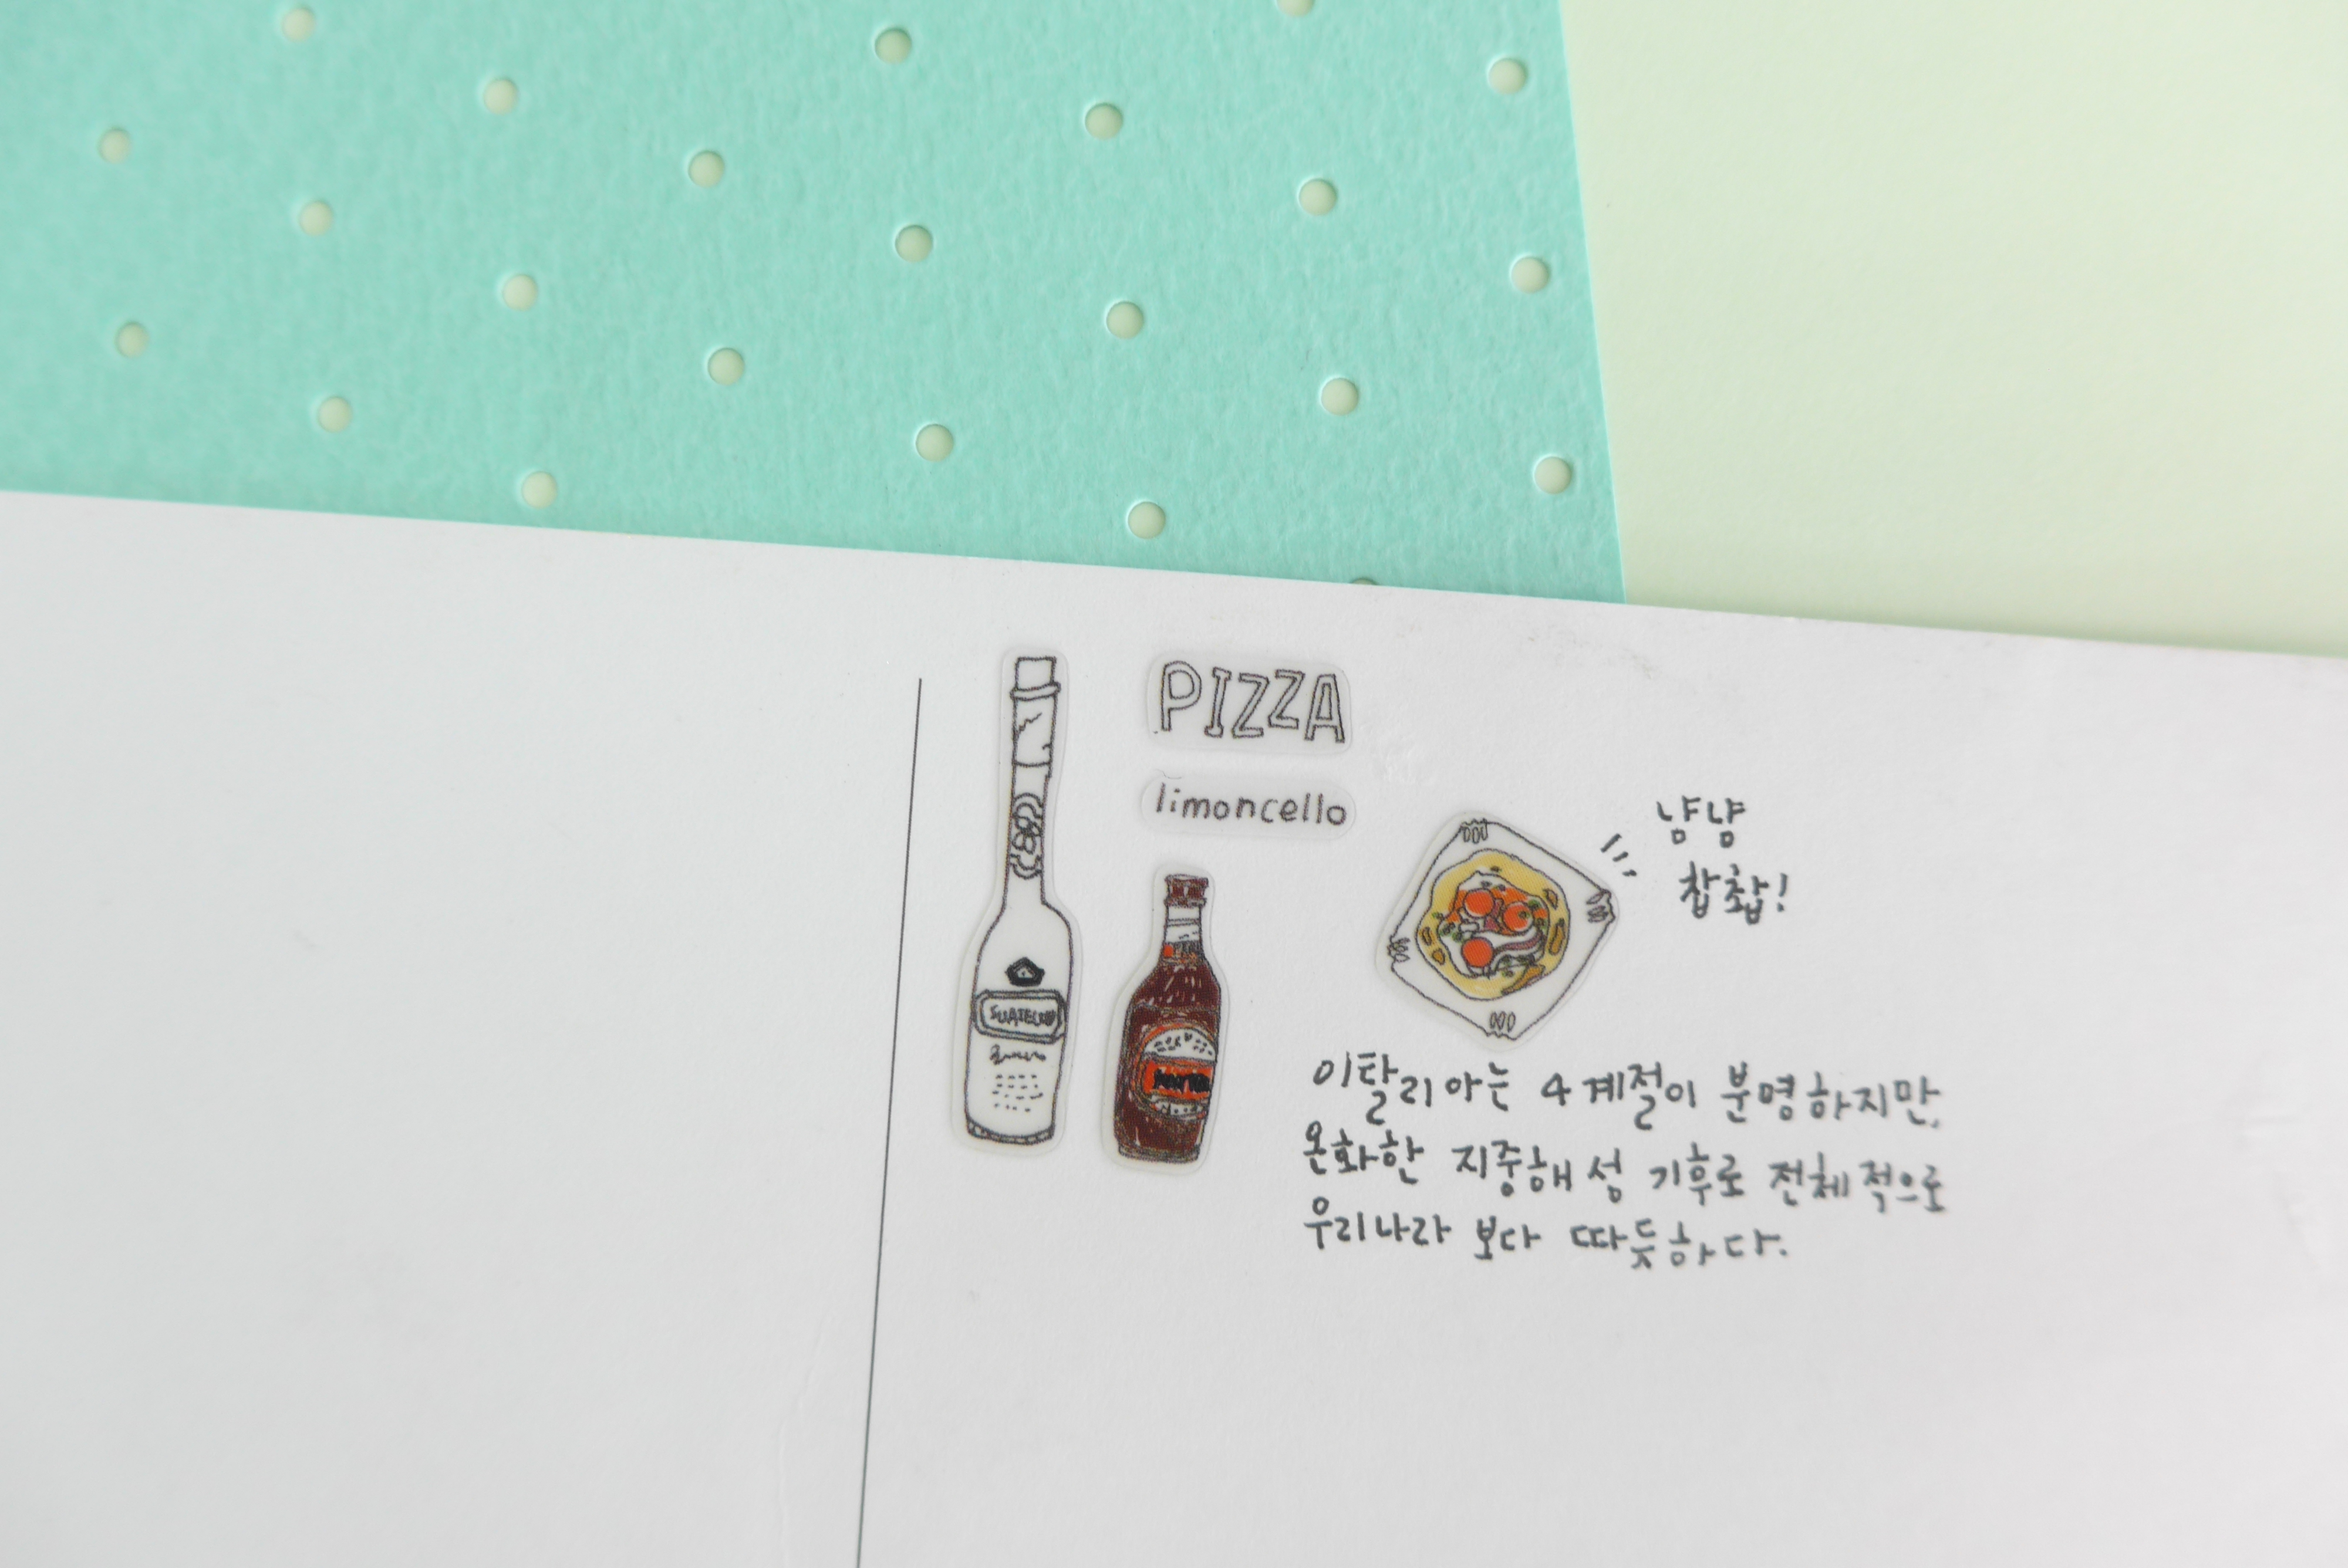 PIZZA
limoncello
냠냠
찹찹!
이탈리아는 4계절이 분명하지만,
온화한 지중해성 기후로 전체적으로
우리나라 보다 따듯하다.